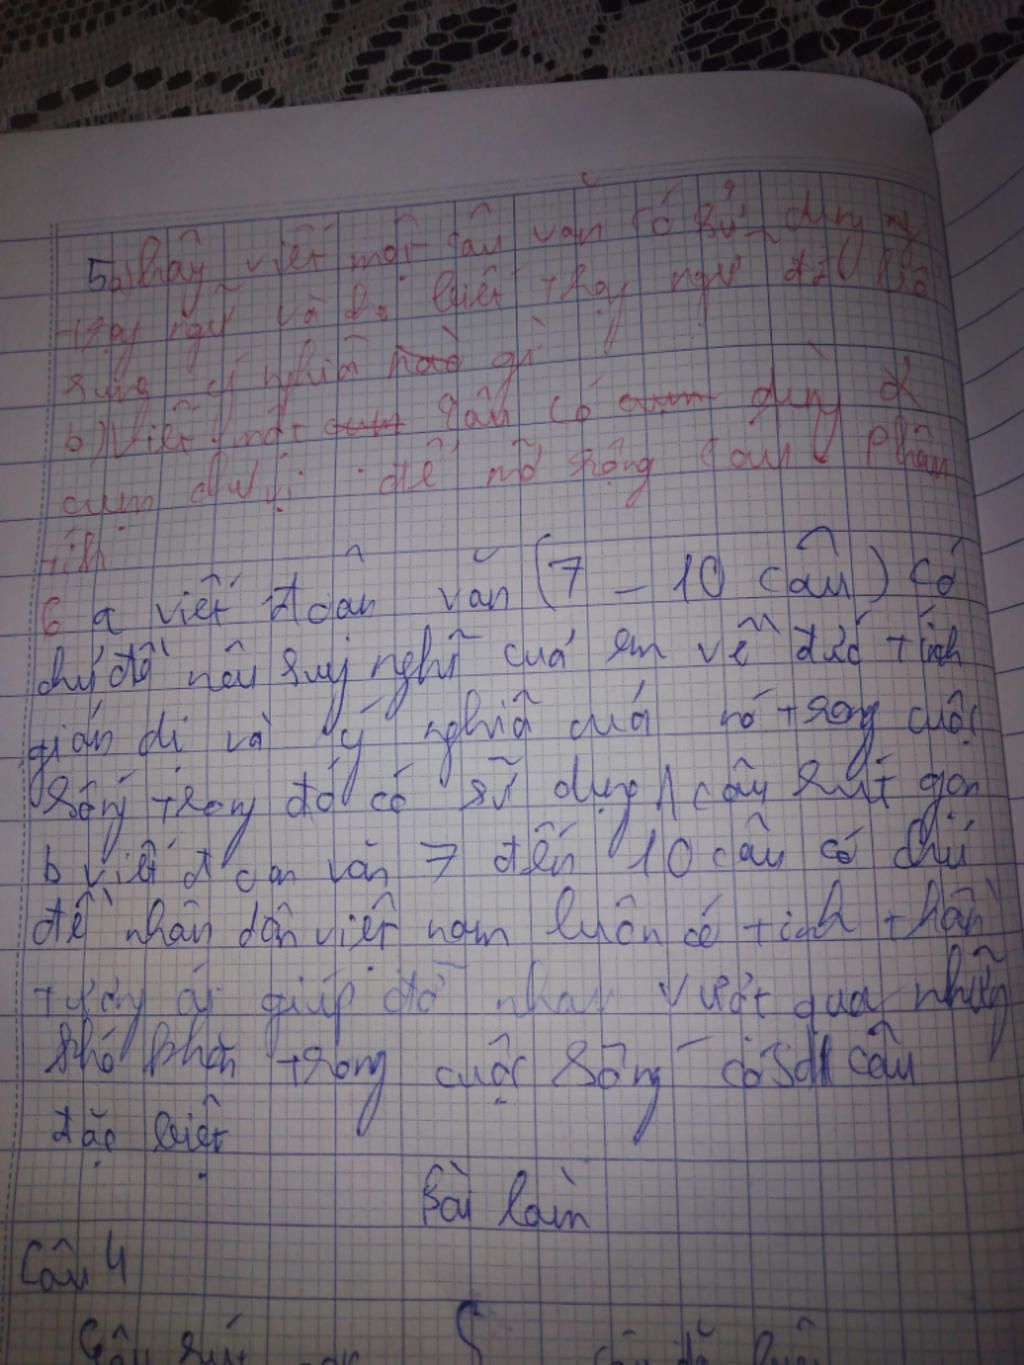 5a) hãy viết một câu văn có sử dụng
trạng ngữ và cho biết trạng ngữ đó bổ
sung ý nghĩa gì
b) Viết một câu có dùng
cụm chủ vị để mở rộng câu phân
tích
6 a viết đoạn văn (7 - 10 câu) có
chủ đề nêu suy nghĩ của em về đức tính
giản dị và ý nghĩa của nó trong cuộc
sống trong đó có sử dụng 1 câu rút gọn
b viết đoạn văn 7 đến 10 câu có chủ
đề nhân dân việt nam luôn có tinh thần
tương ái giúp đỡ nhau vượt qua những
khó khăn trong cuộc sống có sd câu
đặc biệt
Bài làm
Câu 4
Câu rút gọn